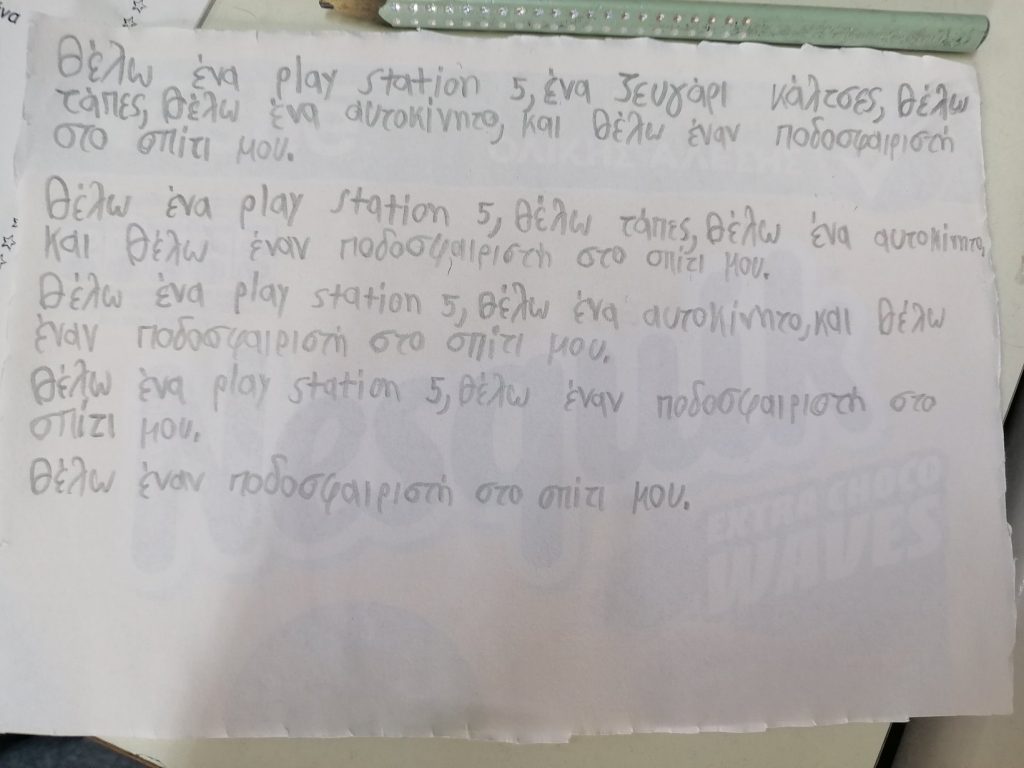 θέλω ένα play station 5, ένα ζευγάρι κάλτσες, θέλω
τάπες, θέλω ένα αυτοκίνητο, και θέλω έναν ποδοσφαιριστή
στο σπίτι μου.
θέλω ένα play station 5, θέλω τάπες, θέλω ένα αυτοκίνητο,
και θέλω έναν ποδοσφαιριστή στο σπίτι μου.
θέλω ένα play station 5, θέλω ένα αυτοκίνητο, και θέλω
έναν ποδοσφαιριστή στο σπίτι μου.
θέλω ένα play station 5, θέλω έναν ποδοσφαιριστή στο
σπίτι μου.
θέλω έναν ποδοσφαιριστή στο σπίτι μου.